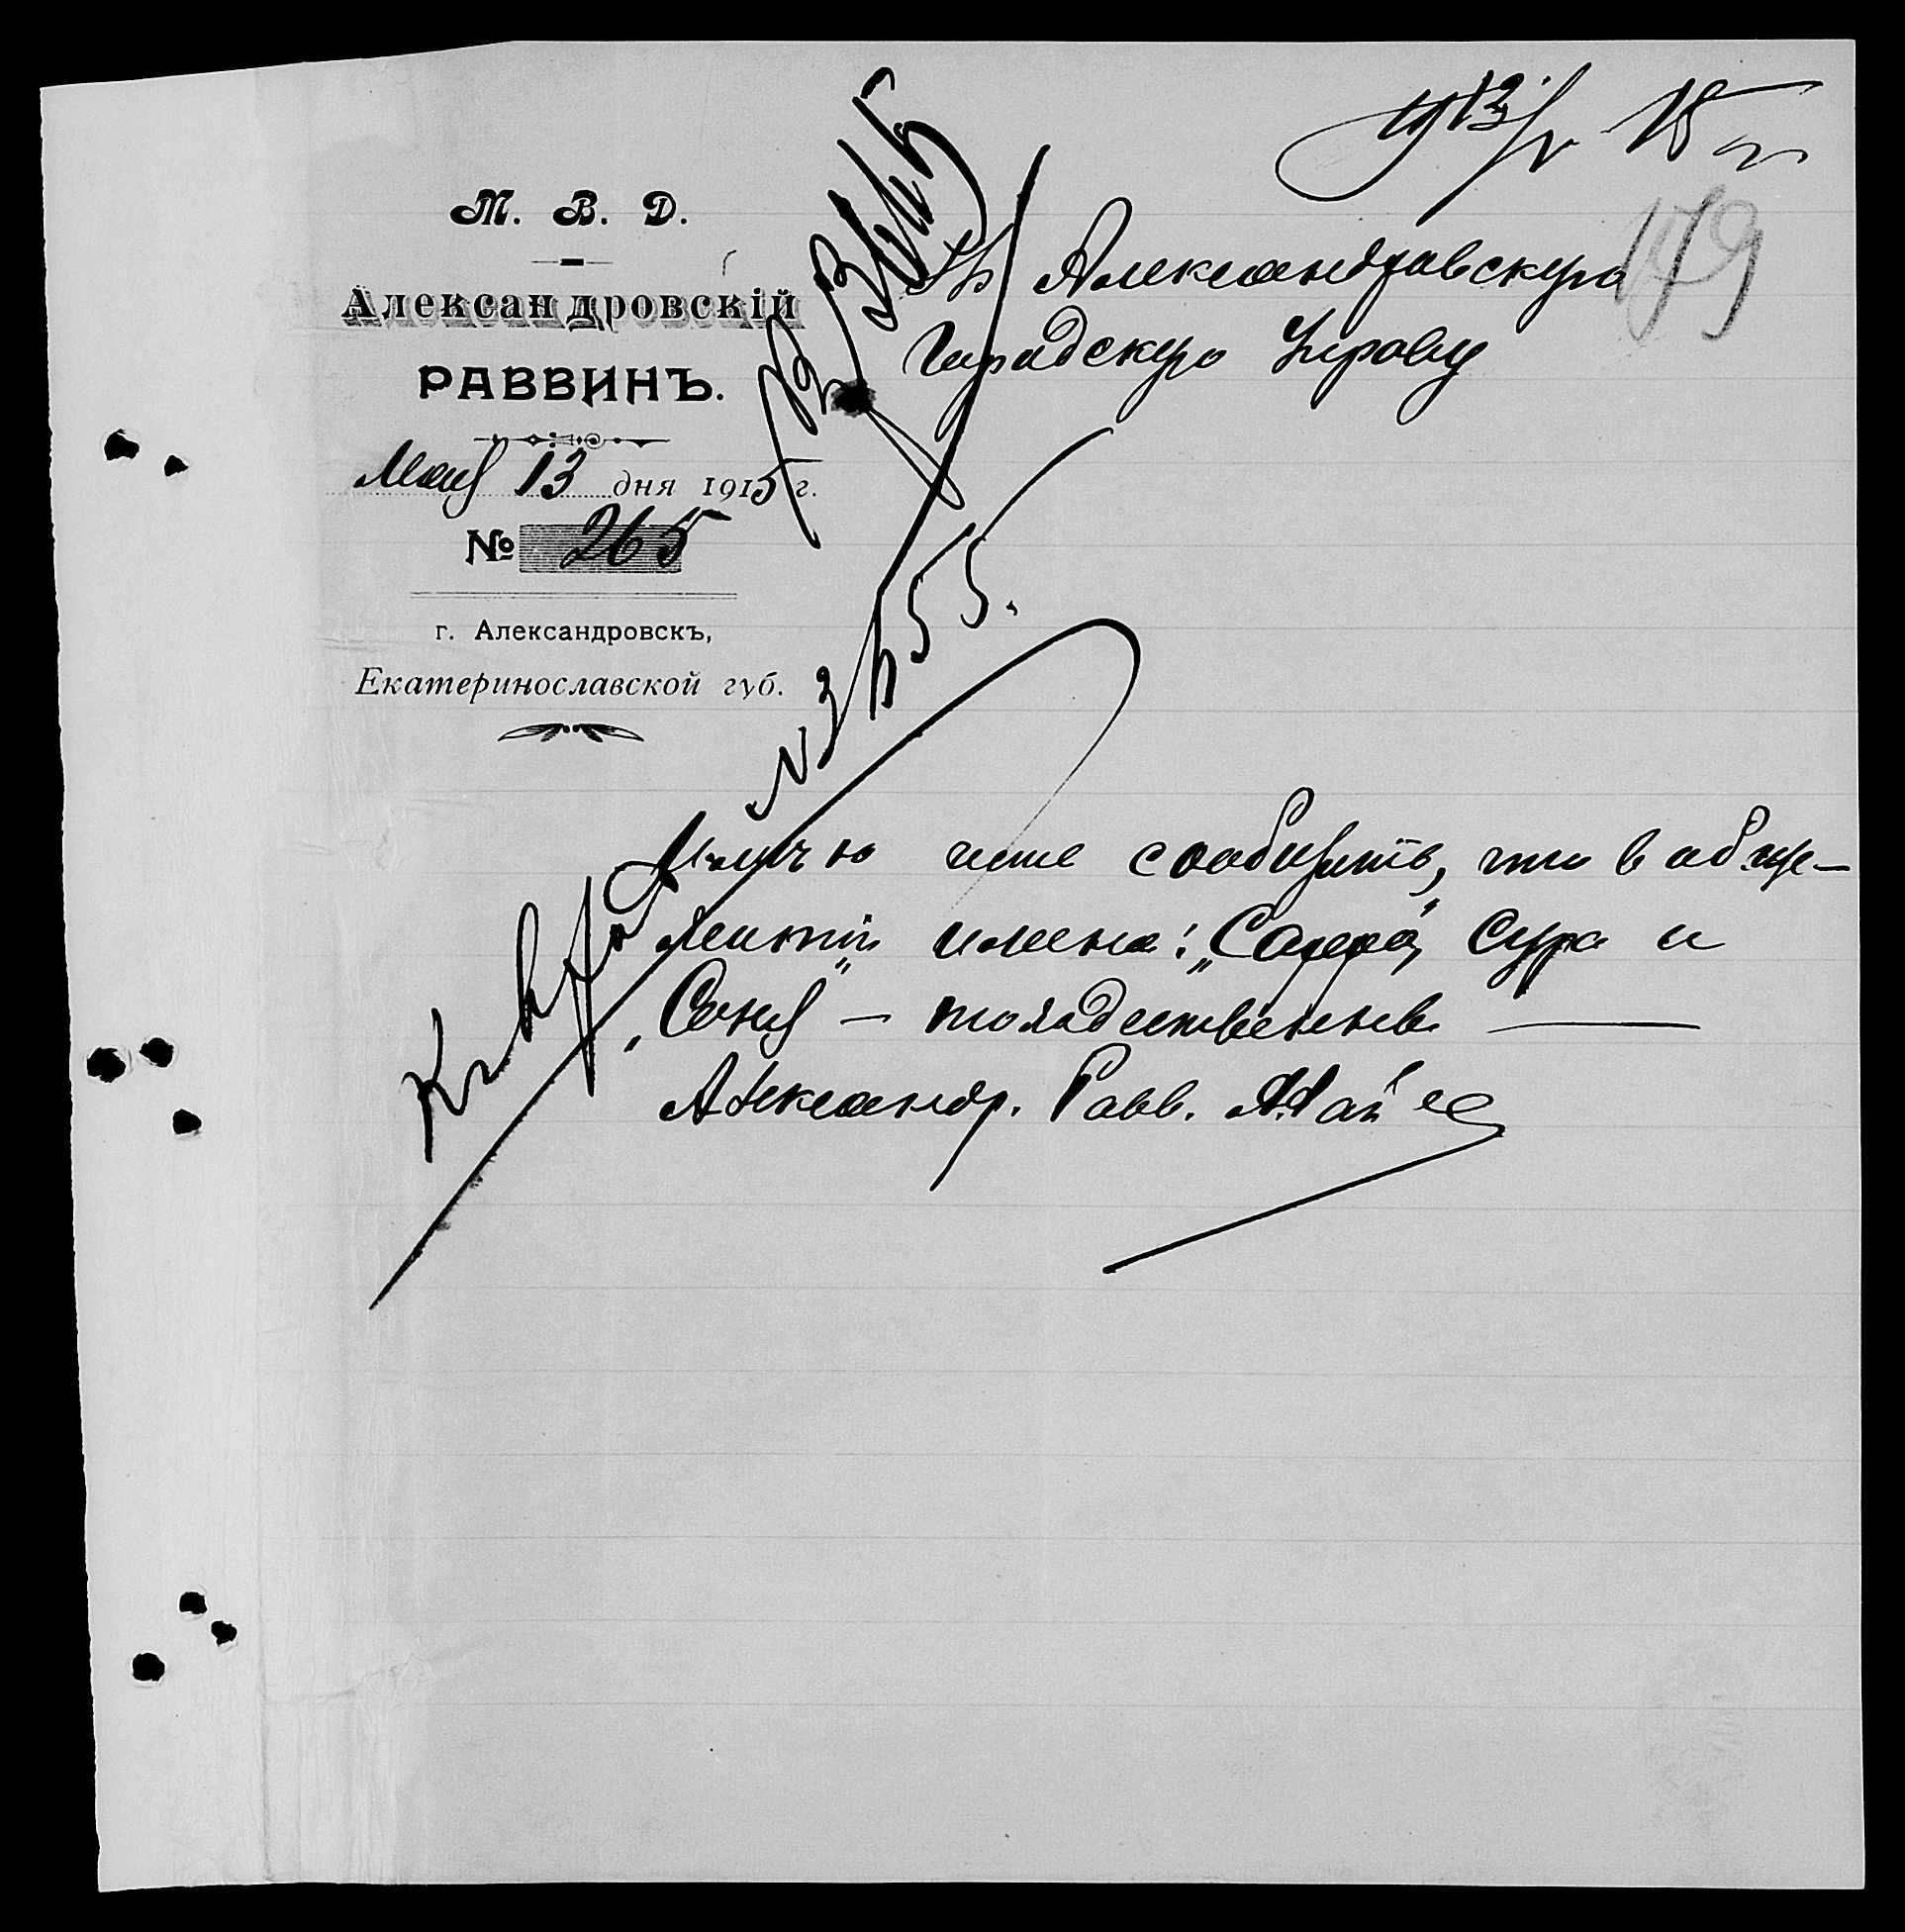 М. В. Д.
Александровскій
РАВВИНЪ.
Мая 13 дня 1915 г.
№ 265
г. Александровскъ,
Екатеринославской губ.
179
Въ Александровскую
Городскую Управу
Имѣю честь сообщить, что в обще-
житіи имена: „Сарра", Сура и
„Соня" – тождественны
Александр. Равв.
№ 3655.